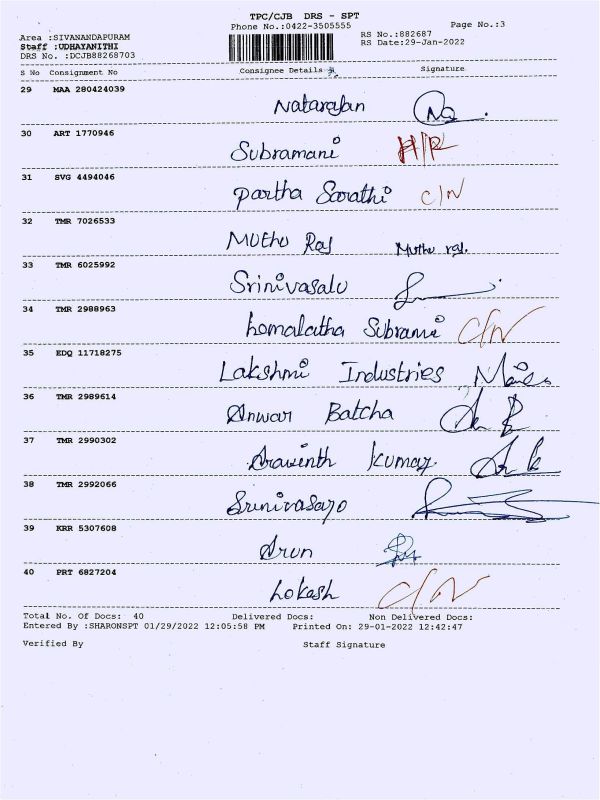 TPC/CJB DRS - SPT
Phone No.:0422-3505555
Page No.:3
Area :SIVANANDAPURAM
RS No.:882687
Staff :UDHAYANITHI
RS Date:29-Jan-2022
DRS No. :DCJB88268703
S No Consignment No Consignee Details Signature
29 MAA 280424039
Natarajan
30 ART 1770946
Subramani H/R
31 SVG 4494046
Partha Sarathi C/N
32 TMR 7026533
Muthu Raj Muthu raj.
33 TMR 6025992
Srinivasalu
34 TMR 2988963
homalatha Subramani C/N
35 EDQ 11718275
Lakshmi Industries
36 TMR 2989614
Anwar Batcha
37 TMR 2990302
Aravinth Kumar
38 TMR 2992066
Srinivasayo
39 KRR 5307608
Arun
40 PRT 6827204
Lokash C/N
Total No. Of Docs: 40 Delivered Docs: Non Delivered Docs:
Entered By :SHARONSPT 01/29/2022 12:05:58 PM Printed On: 29-01-2022 12:42:47
Verified By Staff Signature